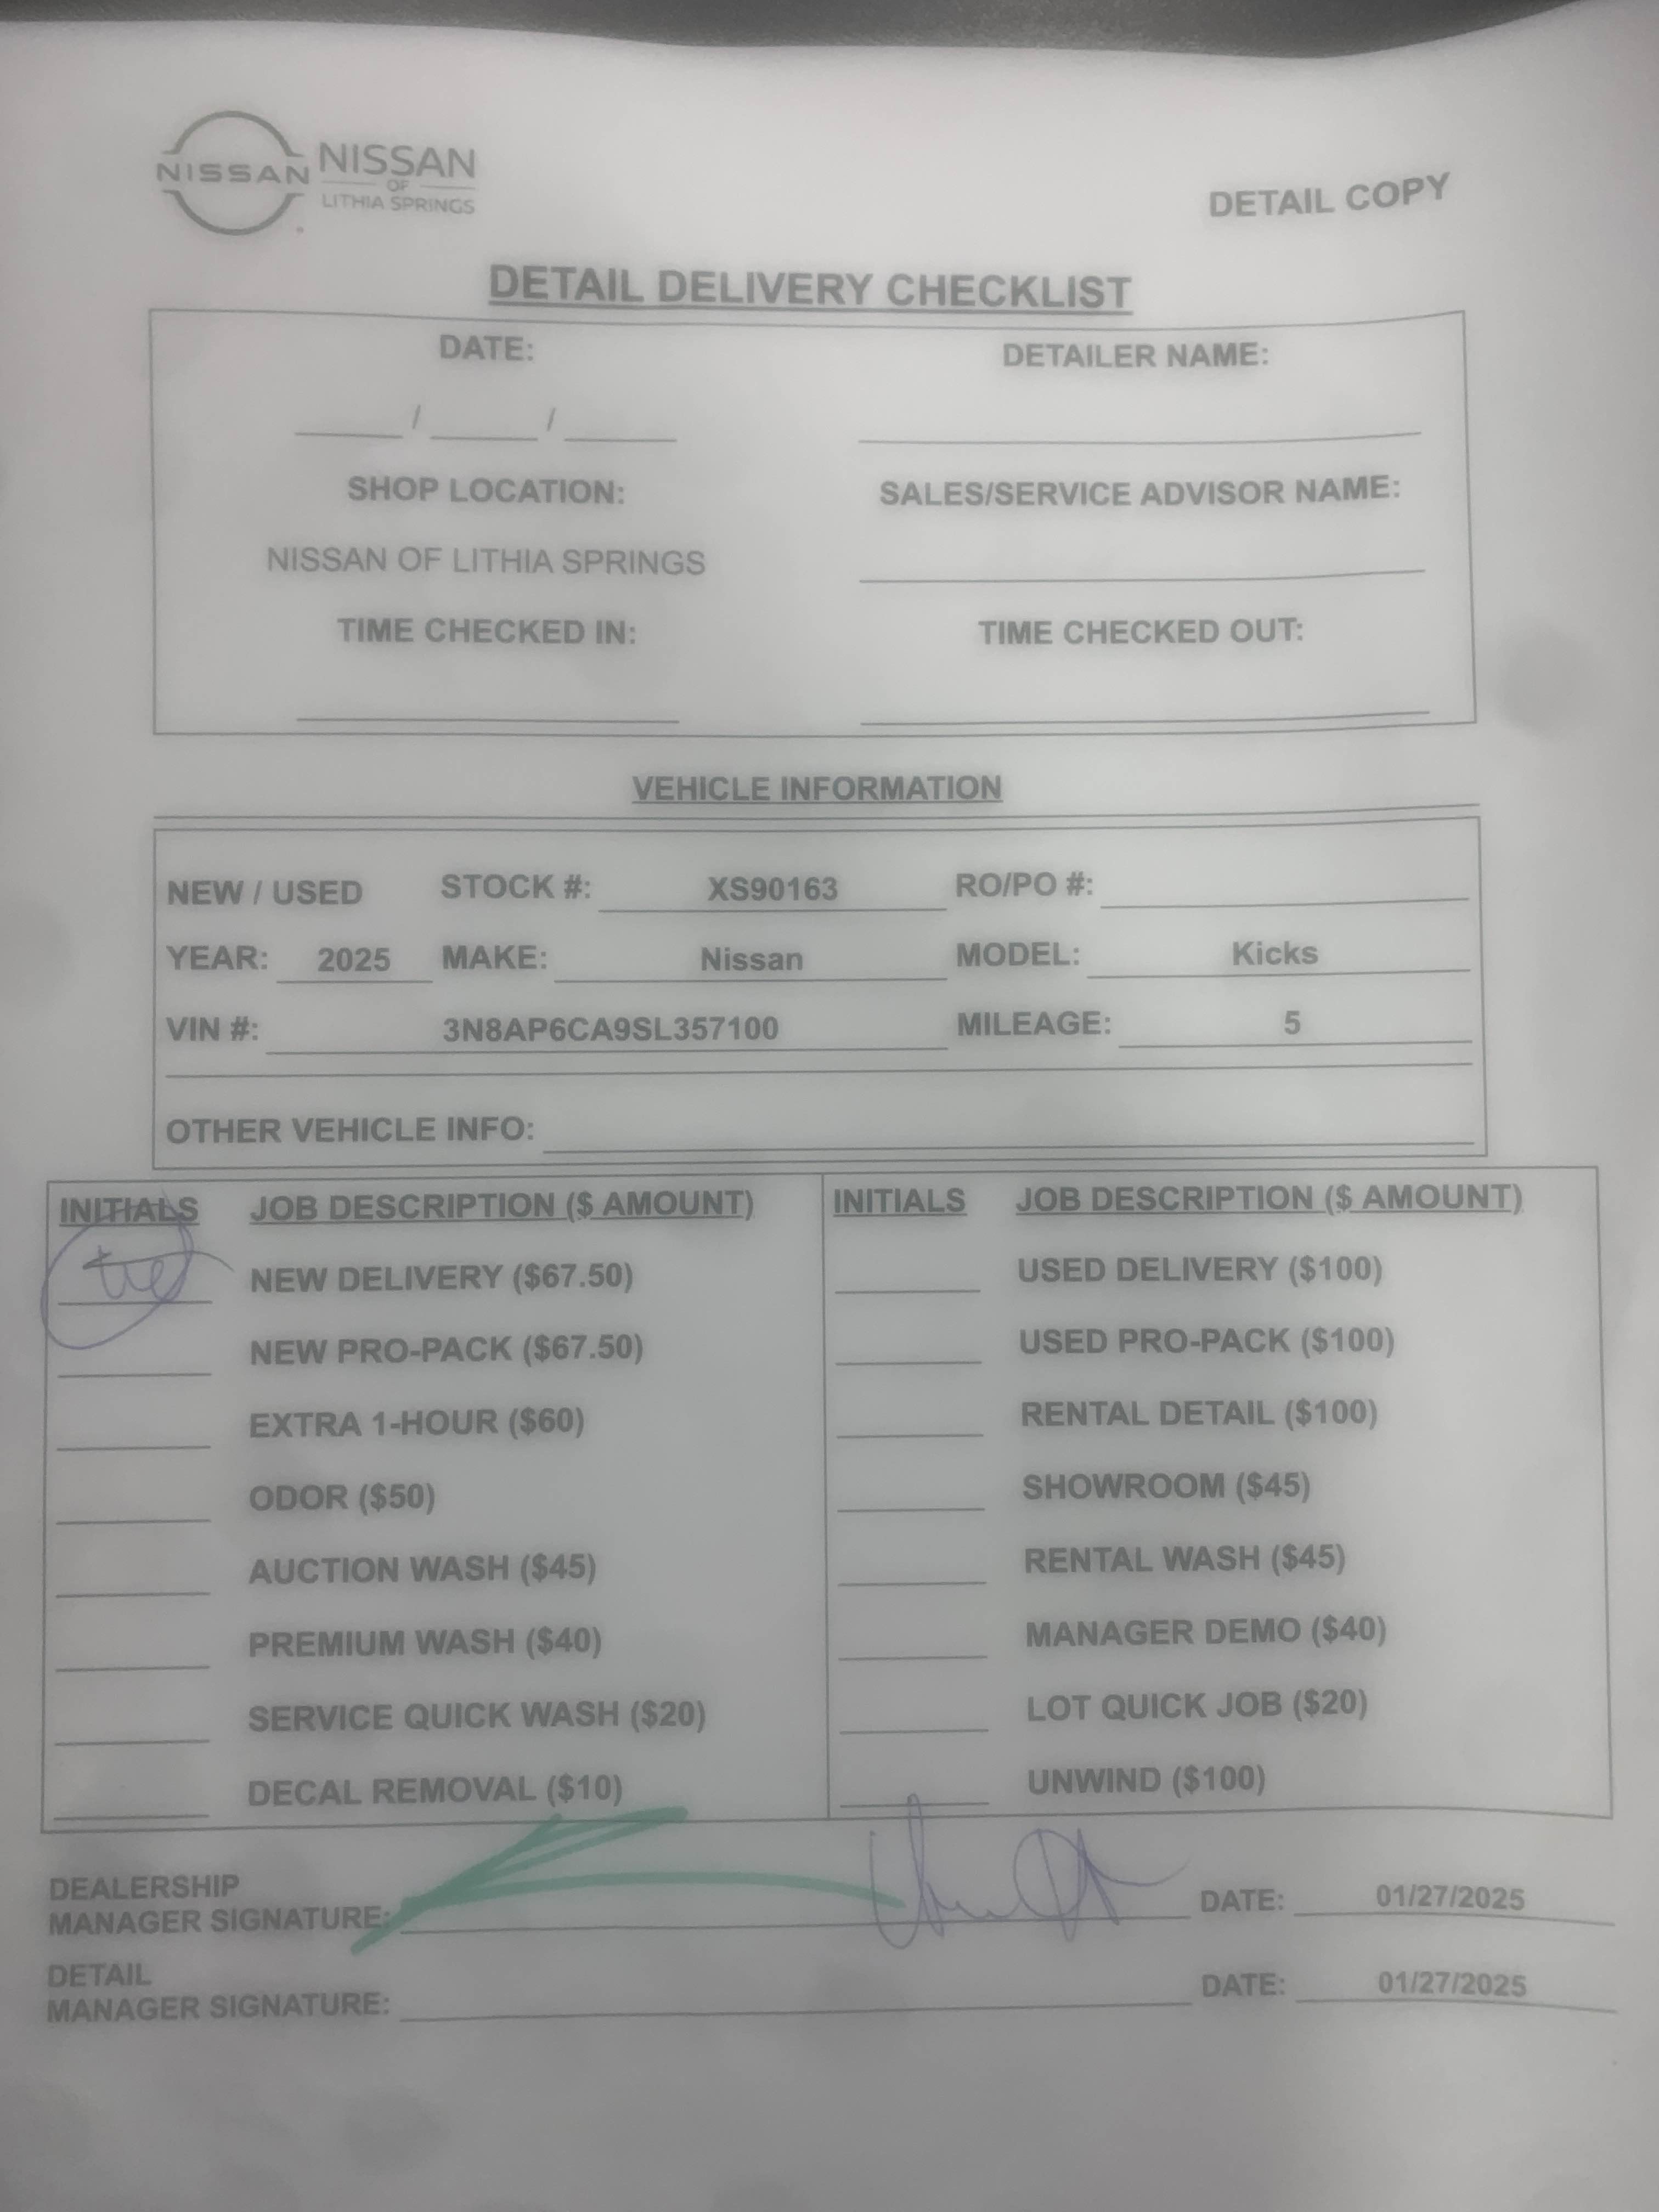 NISSAN
NISSAN
OF
LITHIA SPRINGS
DETAIL COPY
DETAIL DELIVERY CHECKLIST
DATE: DETAILER NAME:
/ /
SHOP LOCATION: SALES/SERVICE ADVISOR NAME:
NISSAN OF LITHIA SPRINGS
TIME CHECKED IN: TIME CHECKED OUT:
VEHICLE INFORMATION
NEW / USED STOCK #: XS90163 RO/PO #:
YEAR: 2025 MAKE: Nissan MODEL: Kicks
VIN #: 3N8AP6CA9SL357100 MILEAGE: 5
OTHER VEHICLE INFO:
INITIALS JOB DESCRIPTION ($ AMOUNT) INITIALS JOB DESCRIPTION ($ AMOUNT)
NEW DELIVERY ($67.50) USED DELIVERY ($100)
NEW PRO-PACK ($67.50) USED PRO-PACK ($100)
EXTRA 1-HOUR ($60) RENTAL DETAIL ($100)
ODOR ($50) SHOWROOM ($45)
AUCTION WASH ($45) RENTAL WASH ($45)
PREMIUM WASH ($40) MANAGER DEMO ($40)
SERVICE QUICK WASH ($20) LOT QUICK JOB ($20)
DECAL REMOVAL ($10) UNWIND ($100)
DEALERSHIP
MANAGER SIGNATURE: DATE: 01/27/2025
DETAIL
MANAGER SIGNATURE: DATE: 01/27/2025